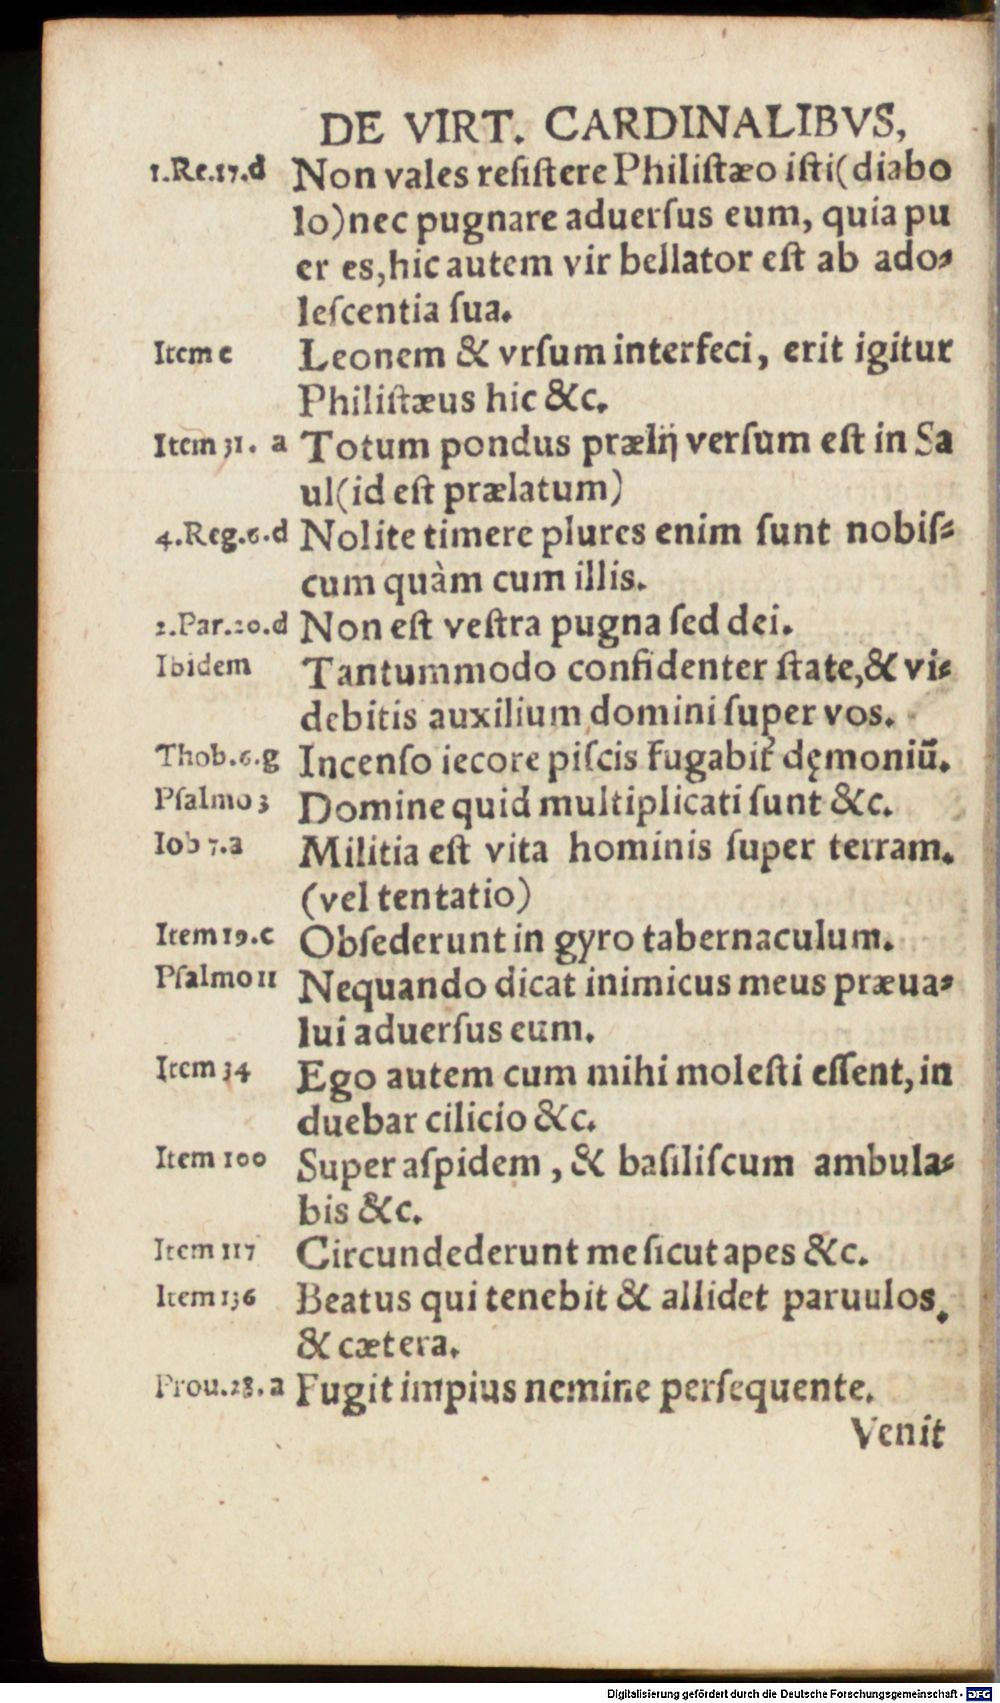 DE VIRT. CARDINALIBVS,
1.Re.17.d Non vales reſiſtere Philiſtæo iſti(diabo
lo)nec pugnare aduerſus eum, quia pu
er es,hic autem vir bellator eſt ab ado⸗
leſcentia ſua.
Item e Leonem & vrſum interfeci, erit igitur
Philiſtæus hic &c.
Item 31. a Totum pondus prælij verſum eſt in Sa
ul(id eſt prælatum)
4.Reg.6.d Nolite timere plures enim ſunt nobiſ⸗
cum quàm cum illis.
2.Par.20.d Non eſt veſtra pugna ſed dei.
Ibidem Tantummodo confidenter ſtate,& vi⸗
debitis auxilium domini ſuper vos.
Thob.6.g Incenſo iecore piſcis fugabit᷑ dęmoniū.
Pſalmo 3 Domine quid multiplicati ſunt &c.
Iob 7.a Militia eſt vita hominis ſuper terram.
(vel tentatio)
Item 19.c Obſederunt in gyro tabernaculum.
Pſalmo 11 Nequando dicat inimicus meus præua⸗
lui aduerſus eum.
Item 34 Ego autem cum mihi moleſti eſſent, in
duebar cilicio &c.
Item 100 Super aſpidem , & baſiliſcum ambula⸗
bis &c.
Item 117 Circundederunt me ſicut apes &c.
Item 136 Beatus qui tenebit & allidet paruulos.
& cætera.
Prou.28. a Fugit impius nemine perſequente.
Venit
Digitalisierung gefördert durch die Deutsche Forschungsgemeinschaft - DFG